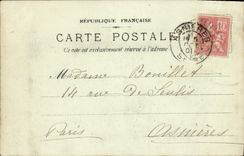 RÉPUBLIQUE FRANÇAISE
CARTE POSTALE
Ce côté est exclusivement réservé à l'adresse
ASNIERES
10
Madame Bouillet
14 rue de Senlis
Paris
Asnières